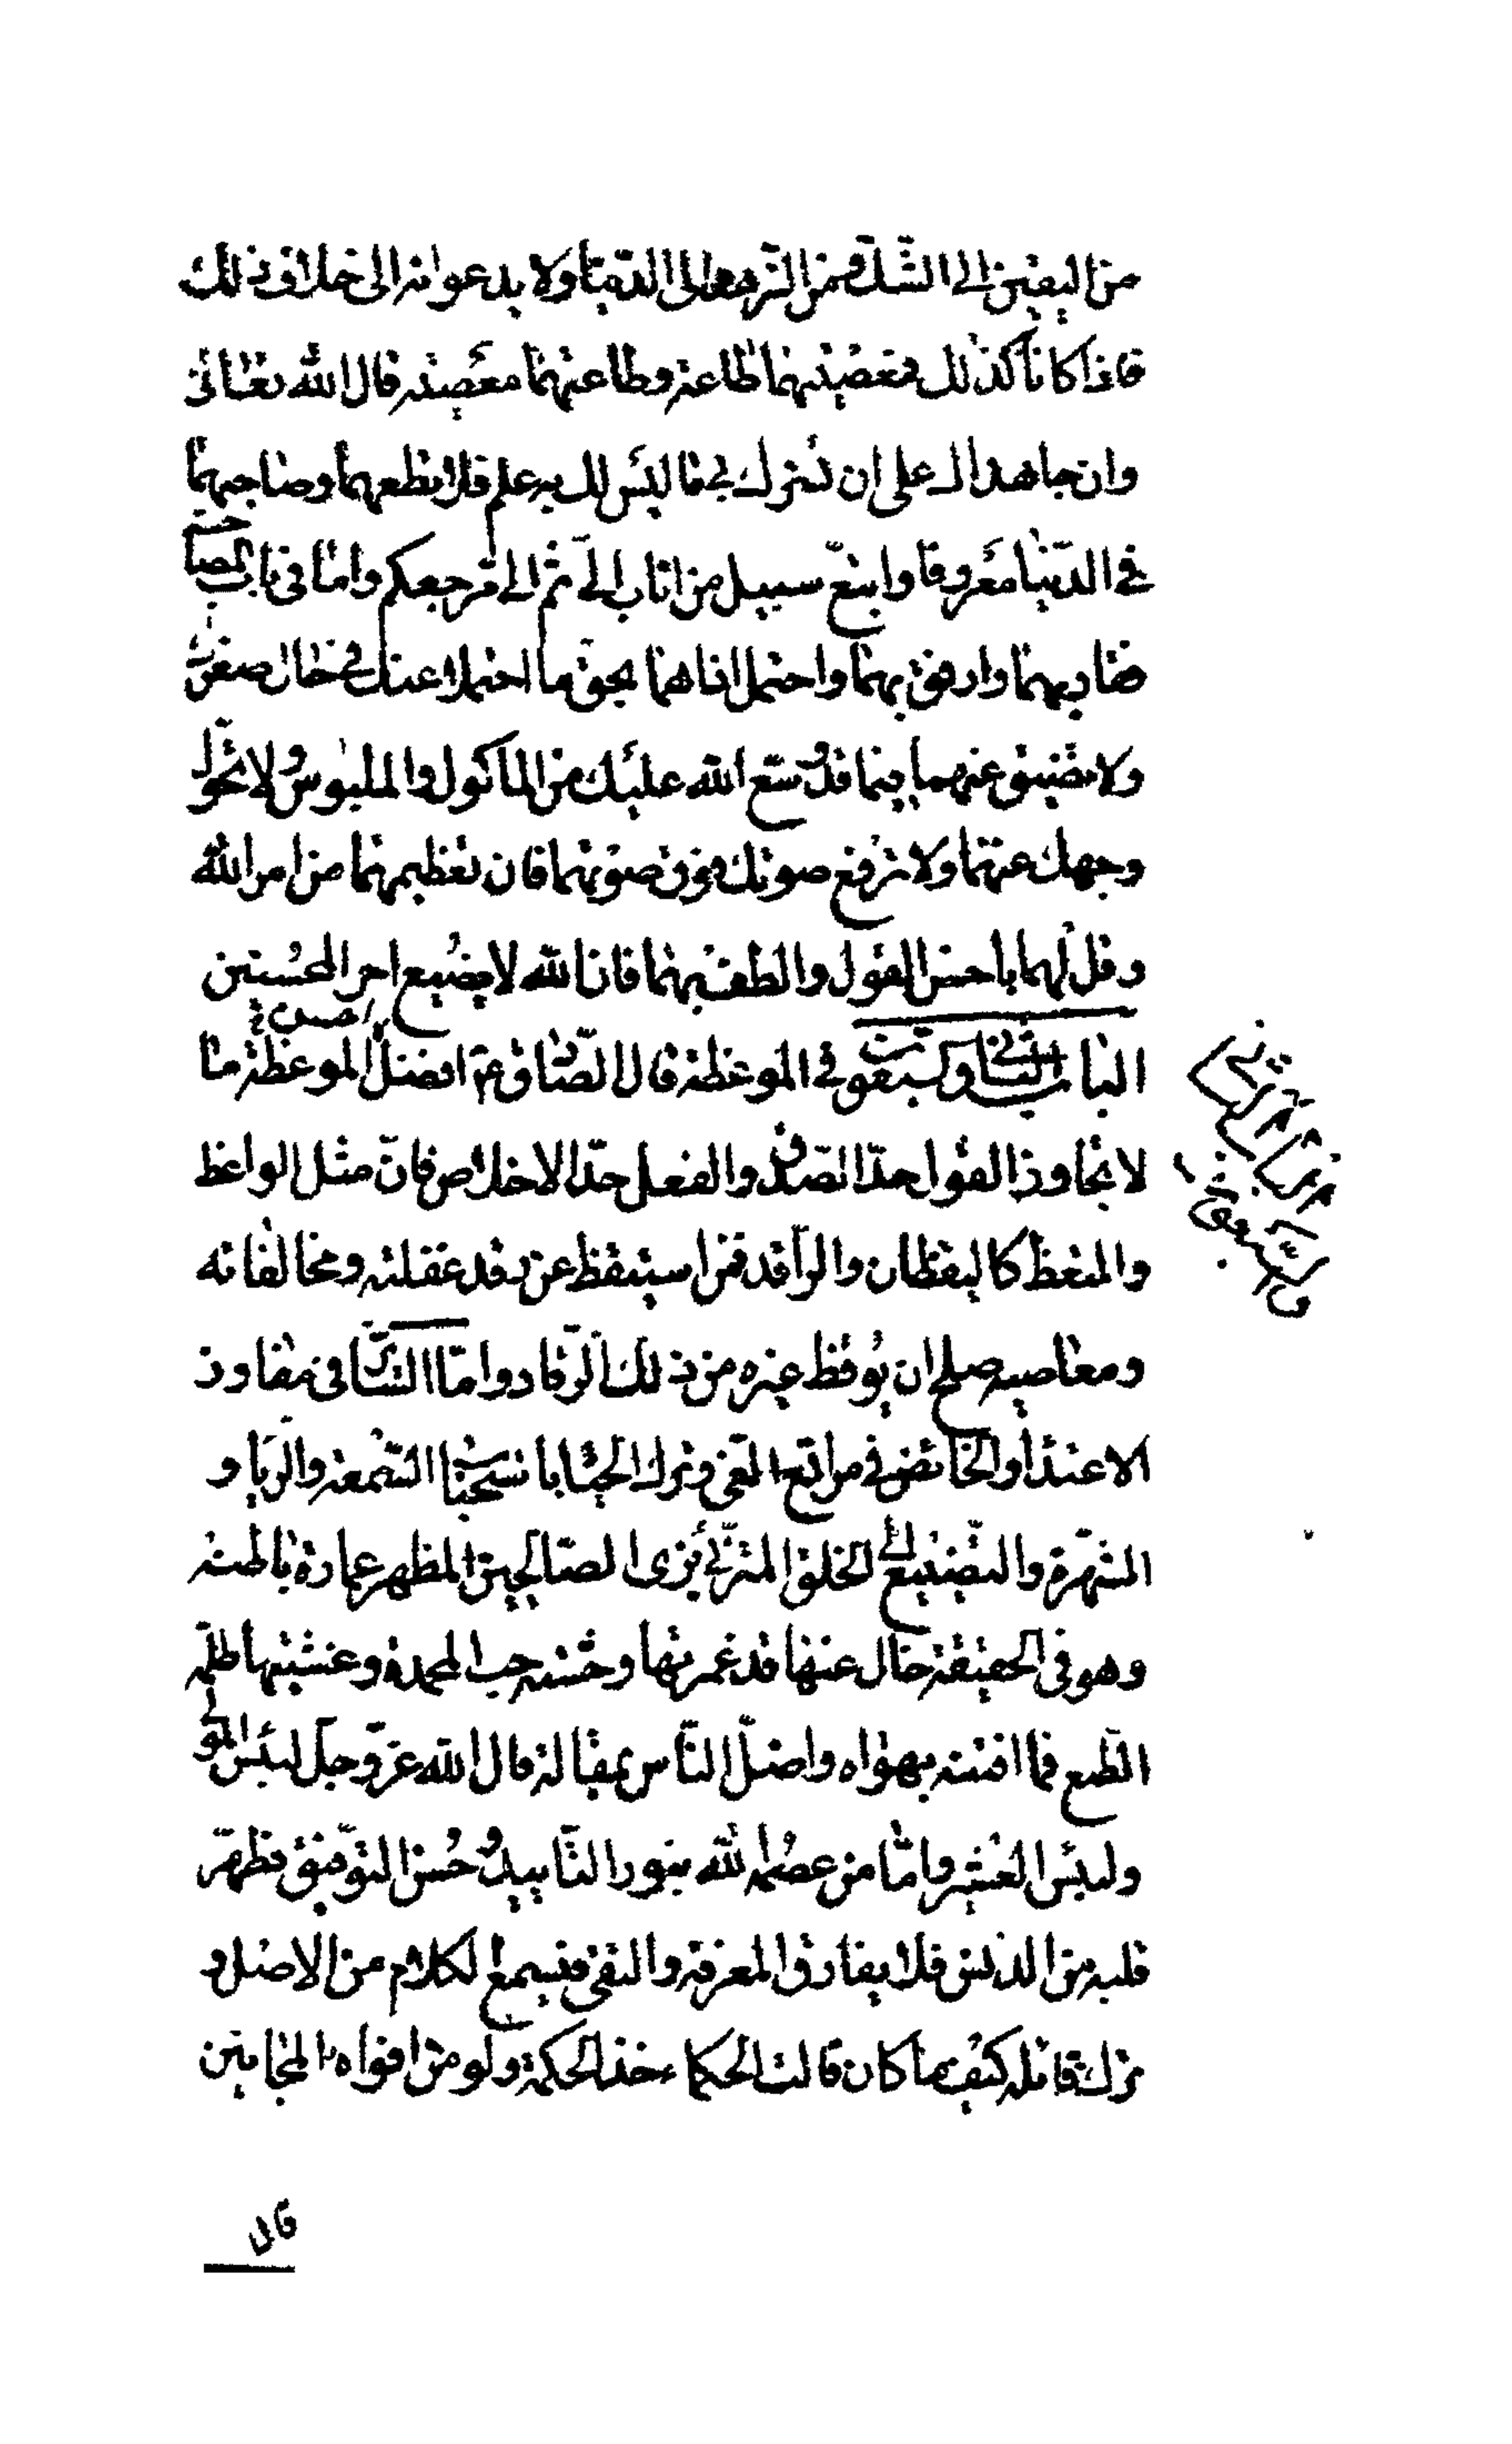 من اليقين الى الشك ومن الزهد الى الدنيا ولا يدعوانه الى خلاف ذلك
فاذا كانا كذلك فمعصيتهما طاعة وطاعتهما معصية قال الله تعالى
وان جاهداك على ان تشرك بي ما ليس لك به علم فلا تطعهما وصاحبهما
في الدنيا معروفا واتبع سبيل من اناب الىّ ثم الى مرجعكم واما في باب المصاحبة
فقاربهما وارفق بهما واحتمل اذاهما بحق ما احتملا عنك في حال صغرك
ولا تضيق عليهما فيما قد وسّع الله عليك من الماكول والملبوس ولا تحوّل
وجهك عنهما ولا ترفع صوتك فوق صوتهما فان تعظيمهما من امر الله
وقل لهما باحسن القول والطف بهما فان الله لا يضيع اجر المحسنين
الباب الثاني وسبعون في الموعظة قال الصادق ع احسن الموعظة ما
لا يتجاوز القول حدّ الصدق والفعل حدّ الاخلاص فانّ مثل الواعظ
والمتعظ كاليقظان والراقد فمن استيقظ عن رقد غفلته ومخالفاته
ومعاصيه صلح ان يوقظ غيره من ذلك الرقاد وامّا السائر في مفاوز
الاعتداء والخائض في مراتع الغي وترك الحياء باستحباب السمعة والرياء و
الشهرة والتصنيع الى الخلق المتزيّي بزى الصالحين المظهر عمارة باطنه
وهو في الحقيقة خال عنها قد غمرتها وحشة حب المحمدة وغشيتها ظلمة
الطمع فما افتنه بهواه واضلّ الناس بمقاله قال الله عزّ وجلّ لبئس المولى
ولبئس العشير وامّا من عصمه الله بنور التاييد وحسن التوفيق فطهّر
قلبه من الدنس فلا يفارق المعرفة والتقى فيستمع الكلام من الاصل و
ترك قائله كيف ما كان قالت الحكماء خذ الحكمة ولو من افواه المجانين
قال